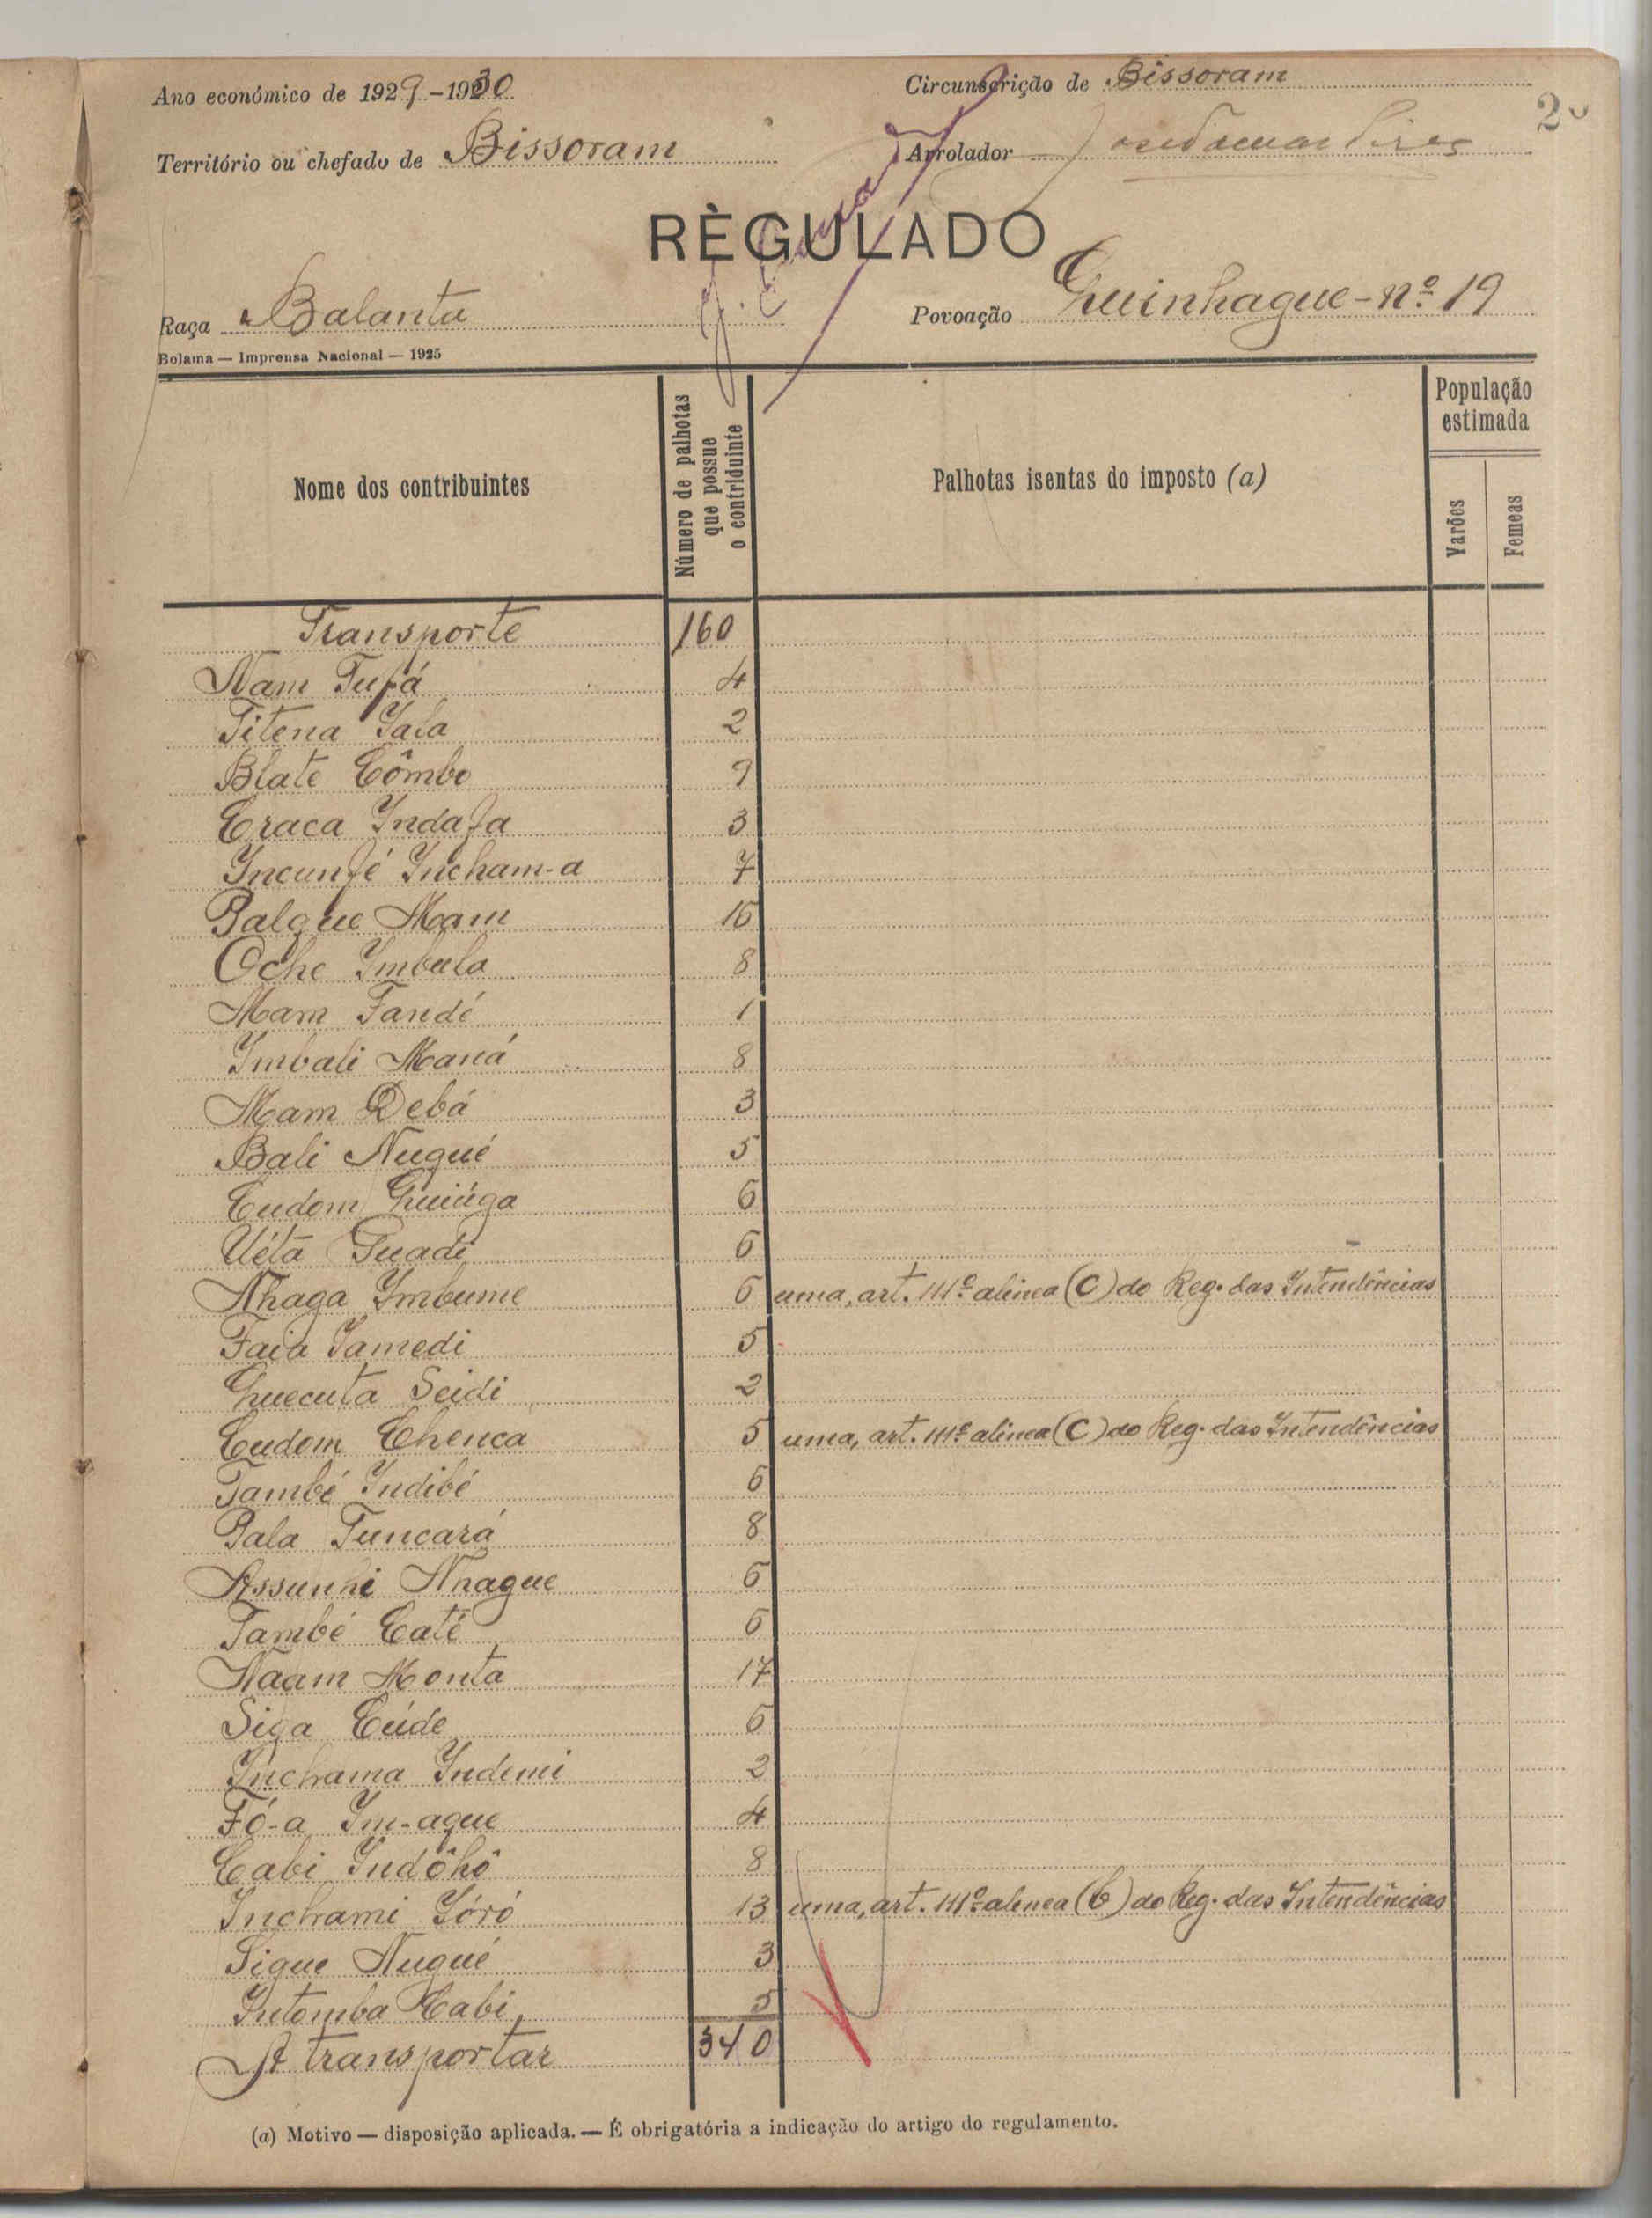 Ano económico de 1929-1930
Circunscrição de Bissoram
20
Território ou chefado de Bissoram
Arrolador
RÈGULADO
Raça Balanta
Povoação Guinhague-nº 19
Bolama — Imprensa Nacional — 1925
Nome dos contribuintes
Número de palhotas
que possue
o contriduinte
Palhotas isentas do imposto (a)
População
estimada
Varões
Femeas
Transporte 160
Nam Tufá 4
Titena Iala 2
Blate Cômbo 9
Craca Indafa 3
Incunfé Incham-a 7
Balque Mam 16
Oche Imbula 8
Mam Fandé 1
Imbali Maná 8
Mam Debá 3
Bali Nugué 5
Cudom Guiúga 6
Uétà Guadi 6
Nhaga Imbume 6 uma, art. 111º alinea (C) do Reg. das Intendências
Faia Samedi 5
Guecuta Seidi 2
Cudom Chenca 5 uma, art. 111º alinea (C) do Reg. das Intendências
També Indibé 6
Pala Tuncará 8
Assunhi Nhague 6
També Caté 6
Naam Monta 17
Siga Cúde 6
Inchama Indemi 2
Fó-a Im-ague 4
Cabi Indôhô 8
Inchami Ióró 13 uma, art. 111º alinea (C) do Reg. das Intendências
Sigue Nugué 3
Intomba Cabi 5
A transportar 340
(a) Motivo — disposição aplicada. — É obrigatória a indicação do artigo do regulamento.